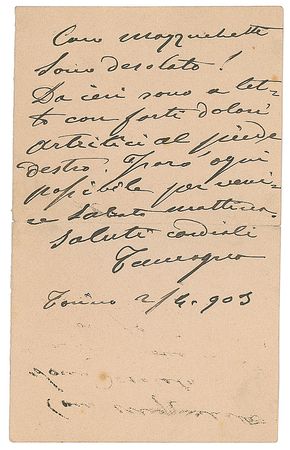 Caro Mazzuchetti
Sono desolato!
Da ieri sono a let-
to con forti dolori
artritici al piede
destro. Farò ogni
possibile per veni-
re sabato mattina.
Saluti cordiali
Tamagno
Torino 2/4. 903